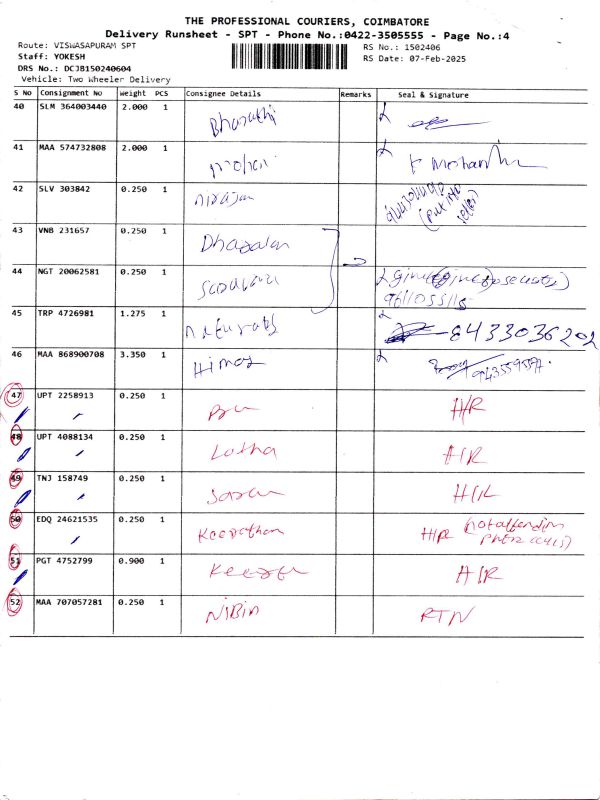 THE PROFESSIONAL COURIERS, COIMBATORE
Delivery Runsheet - SPT - Phone No.:0422-3505555 - Page No.:4
Route: VISWASAPURAM SPT
RS No.: 1502406
Staff: YOKESH
RS Date: 07-Feb-2025
DRS No.: DCJB150240604
Vehicle: Two Wheeler Delivery
S No Consignment No Weight PCS Consignee Details Remarks Seal & Signature
40 SLM 364003440 2.000 1 Bharathi
41 MAA 574732808 2.000 1 mohan
42 SLV 303842 0.250 1 nirajan
43 VNB 231657 0.250 1
44 NGT 20062581 0.250 1
9611055115
45 TRP 4726981 1.275 1 naturals 8433036202
46 MAA 868900708 3.350 1
47 UPT 2258913 0.250 1 H/R
48 UPT 4088134 0.250 1 Latha H/R
49 TNJ 158749 0.250 1 H/R
50 EDQ 24621535 0.250 1 Keerathan H/R
51 PGT 4752799 0.900 1 H/R
52 MAA 707057281 0.250 1 NiBin RTN